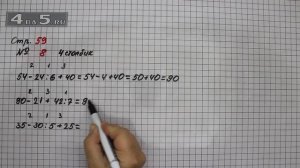 4DA5.RU
Стр. 59
№ 8 4 столбик
2 1 3
54-24:6+40=54-4+40=50+40=90
2 3 1
80-21+42:7=8
2 1 3
35-30:5+25=